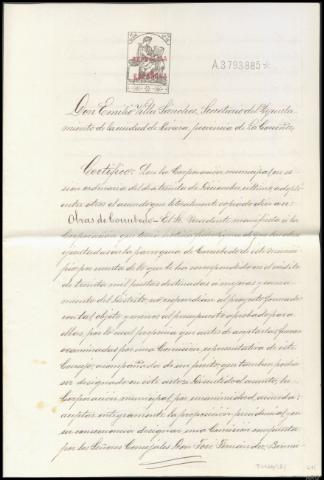 REPUBLICA
ESPAÑOLA
A.3.793.885
Don Emilio Villa Sánchez, Secretario del Ayunta-
miento de la ciudad de Riveira, provincia de La Coruña,
Certifico: Que la Corporación municipal, en se-
sión ordinaria del día treinta de Diciembre último, adoptó
entre otros el acuerdo que literalmente copiado dice así:
Obras de Corrubedo = El Sr. Presidente manifestó a la
Corporación que
ejecutadas en la parroquia de Corrubedo de este muni-
cipio por cuenta de lo que le ha correspondido en el crédito
de treinta mil pesetas destinadas a mejoras y
del Distrito no respondían al proyecto formado
con tal objeto y menos al presupuesto aprobado para
ellas, por lo cual proponía que antes de aceptarlas fueran
examinadas por una Comisión, representativa de este
Consejo, acompañada de un perito que también podía
ser designado en este acto. = Discutido el asunto, la
Corporación municipal, por unanimidad, acuerda:
aceptar íntegramente la proposición presidencial y en
su consecuencia designar una Comisión compuesta
por los Señores Concejales Don José Fernández